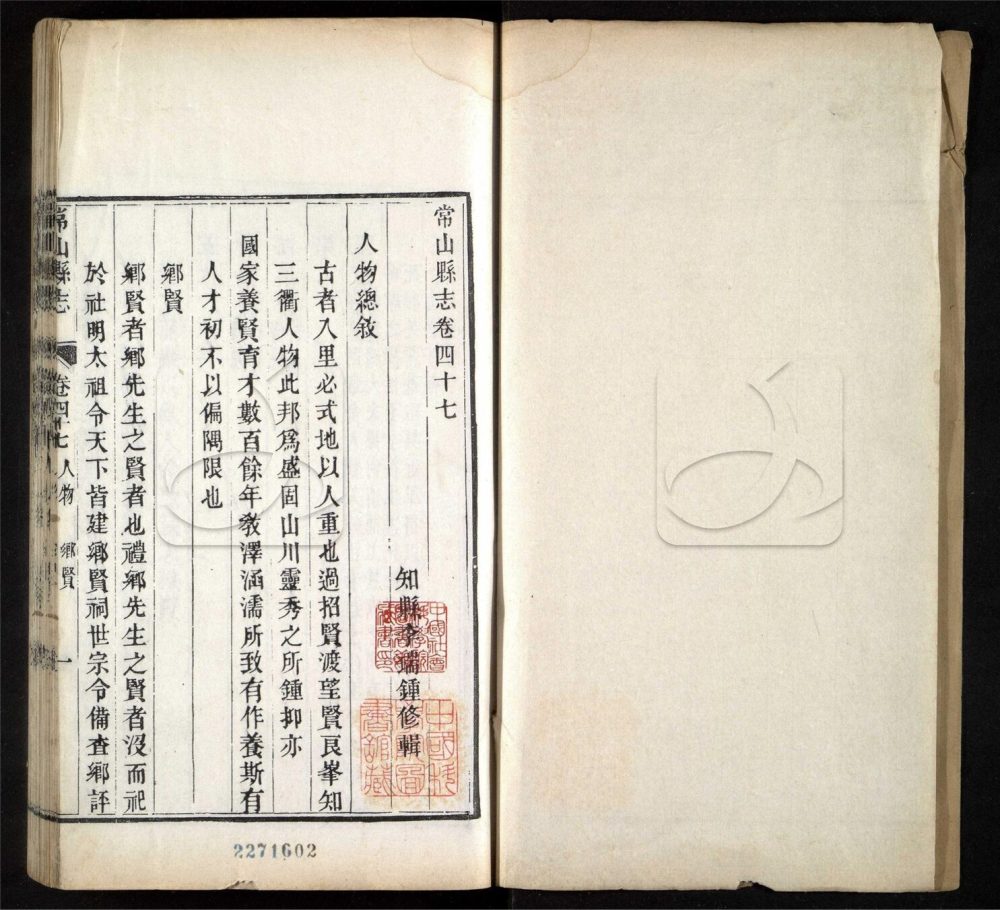 常山縣志卷四十七
知縣李瑞鍾修輯
人物總敘
古者入里必式地以人重也過招賢渡望賢良峯知
三衢人物此邦為盛固山川靈秀之所鍾抑亦
國家養賢育才數百餘年教澤涵濡所致有作養斯有
人才初不以偏隅限也
鄉賢
鄉賢者鄉先生之賢者也禮鄉先生之賢者沒而祀
於社明太祖令天下皆建鄉賢祠世宗令備查鄉評
常山縣志 卷四十七 人物 鄉賢 一
2271602